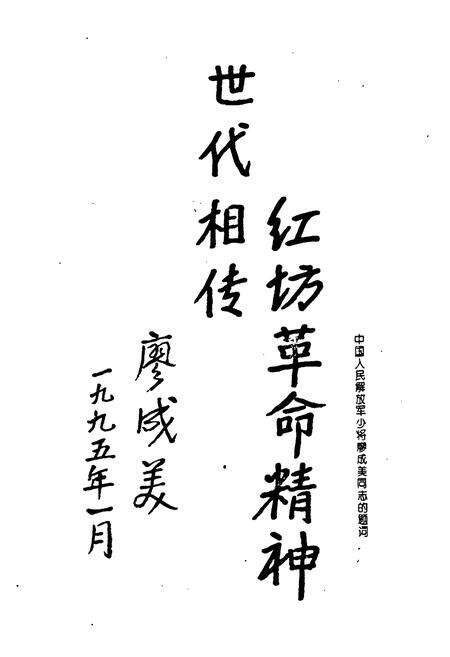 中国人民解放军少将廖成美同志的题词
红坊革命精神
世代相传
廖成美
一九九五年一月